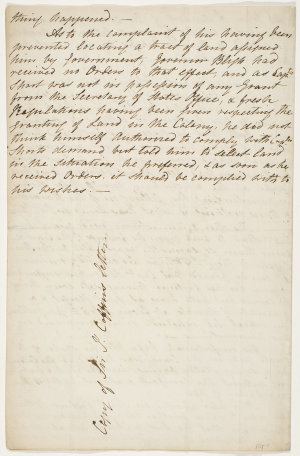 thing happened. —
As to the complaint of his having been
prevented locating a tract of land assigned
him by Government, Governor Bligh had
received no Orders to that effect, and as Capt.
Short was not in possession of any Grant
from the Secretary of States Office, & fresh
Regulations having been given respecting the
granting of Land in the Colony, he did not
think himself Authorised to comply with Capt.
Shorts demand but told him to select land
in the Situation he preferred, & as soon as he
received Orders. it should be complied with to
his wishes. —
Copy of Sir I. Coffins letter